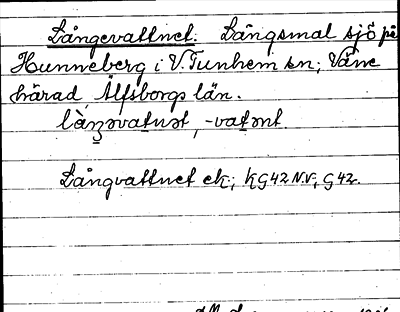 Långevattnet. Långsmal sjö på
Hunneberg i V. Tunhem sn; Väne
härad, Älfsborgs län.
làŋəvatnət, -vatənt.
Långvattnet ek; KG42 N.V., G42.